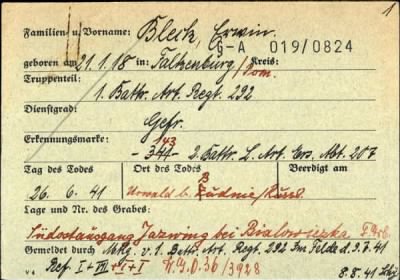 1
Familien- u. Vorname: Bleik, Erwin
G-A 019/0824
geboren am 21.1.18 in: Falkenburg/Pom. Kreis:
Truppenteil:
1. Battr. Art. Regt. 292
Dienstgrad:
Gefr.
Erkennungsmarke:
43
- 344 - 2. Battr. L. Art. Ers. Abt. 207
Tag des Todes Ort des Todes Beerdigt am
26.6.41 Urwald b. Rudnia/Russl.
Lage und Nr. des Grabes:
Südostausgang Jazwing bei Bialowiezka
Gemeldet durch Mkg. v. 1. Battr. Art. Regt. 292 Im Felde d. 9.7.41
v. Ref. I + VII + I + I 8.8.41
36/3928